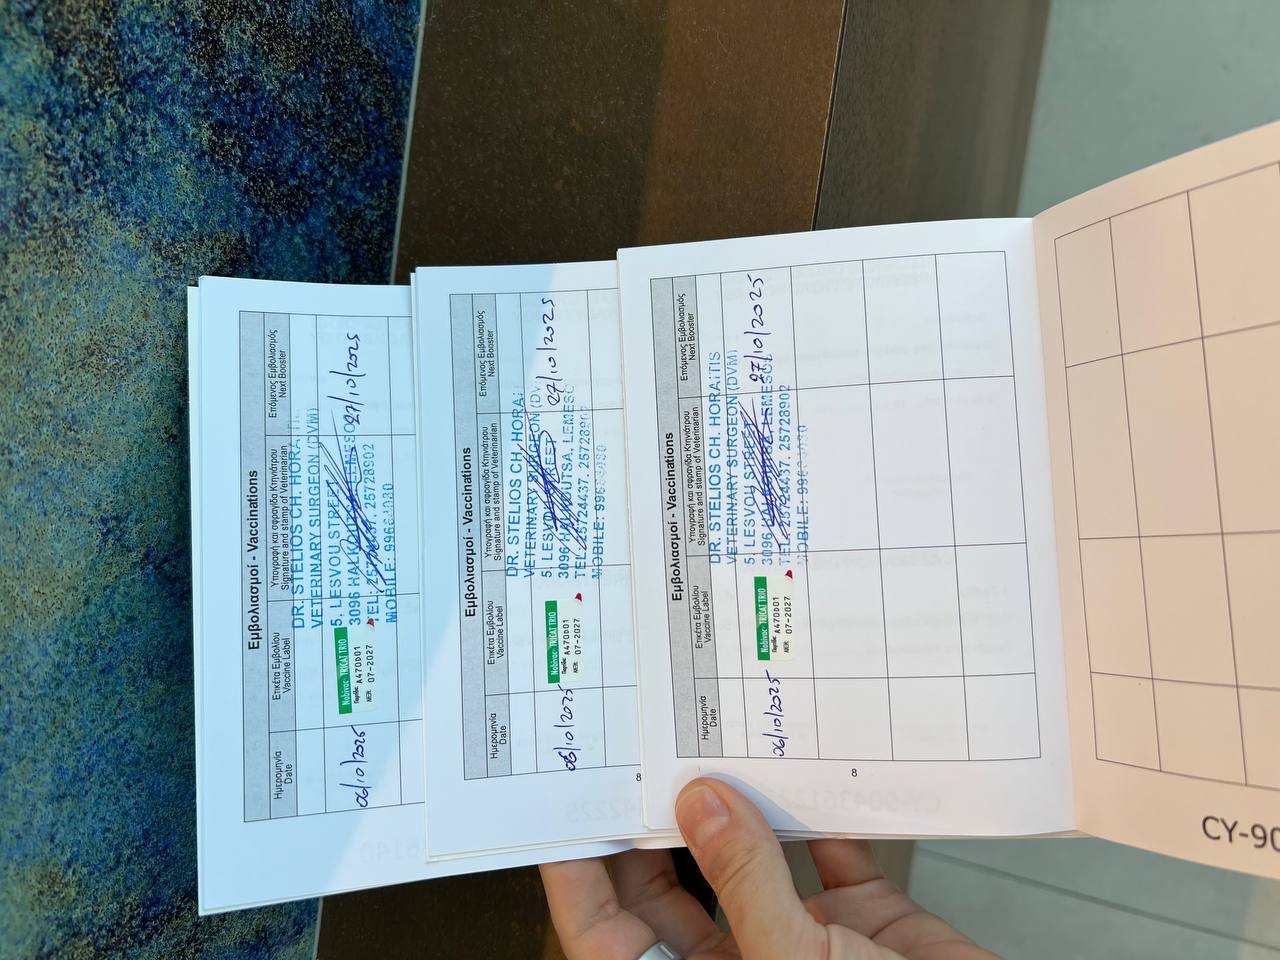 Εμβολιασμοί - Vaccinations
Ημερομηνία
Date
Ετικέτα Εμβολίου
Vaccine Label
Υπογραφή και σφραγίδα Κτηνιάτρου
Signature and stamp of Veterinarian
Επόμενος Εμβολιασμός
Next Booster
06/10/2025
Nobivac TRICAT TRIO
A470D01
07-2027
DR. STELIOS CH.
VETERINARY SURGEON (DVM)
5, LESVOU STREET
3096
TEL: 25728902
MOBILE:
27/10/2025
Εμβολιασμοί - Vaccinations
Ημερομηνία
Date
Ετικέτα Εμβολίου
Vaccine Label
Υπογραφή και σφραγίδα Κτηνιάτρου
Signature and stamp of Veterinarian
Επόμενος Εμβολιασμός
Next Booster
06/10/2025
Nobivac TRICAT TRIO
A470D01
07-2027
DR. STELIOS CH.
VETERINARY SURGEON
5, STREET
3096
TEL: 25724437,
MOBILE:
27/10/2025
8
Εμβολιασμοί - Vaccinations
Ημερομηνία
Date
Ετικέτα Εμβολίου
Vaccine Label
Υπογραφή και σφραγίδα Κτηνιάτρου
Signature and stamp of Veterinarian
Επόμενος Εμβολιασμός
Next Booster
06/10/2025
Nobivac TRICAT TRIO
A470D01
07-2027
DR. STELIOS CH.
VETERINARY SURGEON (DVM)
5, LESVOU STREET
3096
TEL: 25724437, 25728902
MOBILE:
27/10/2025
8
CY-90